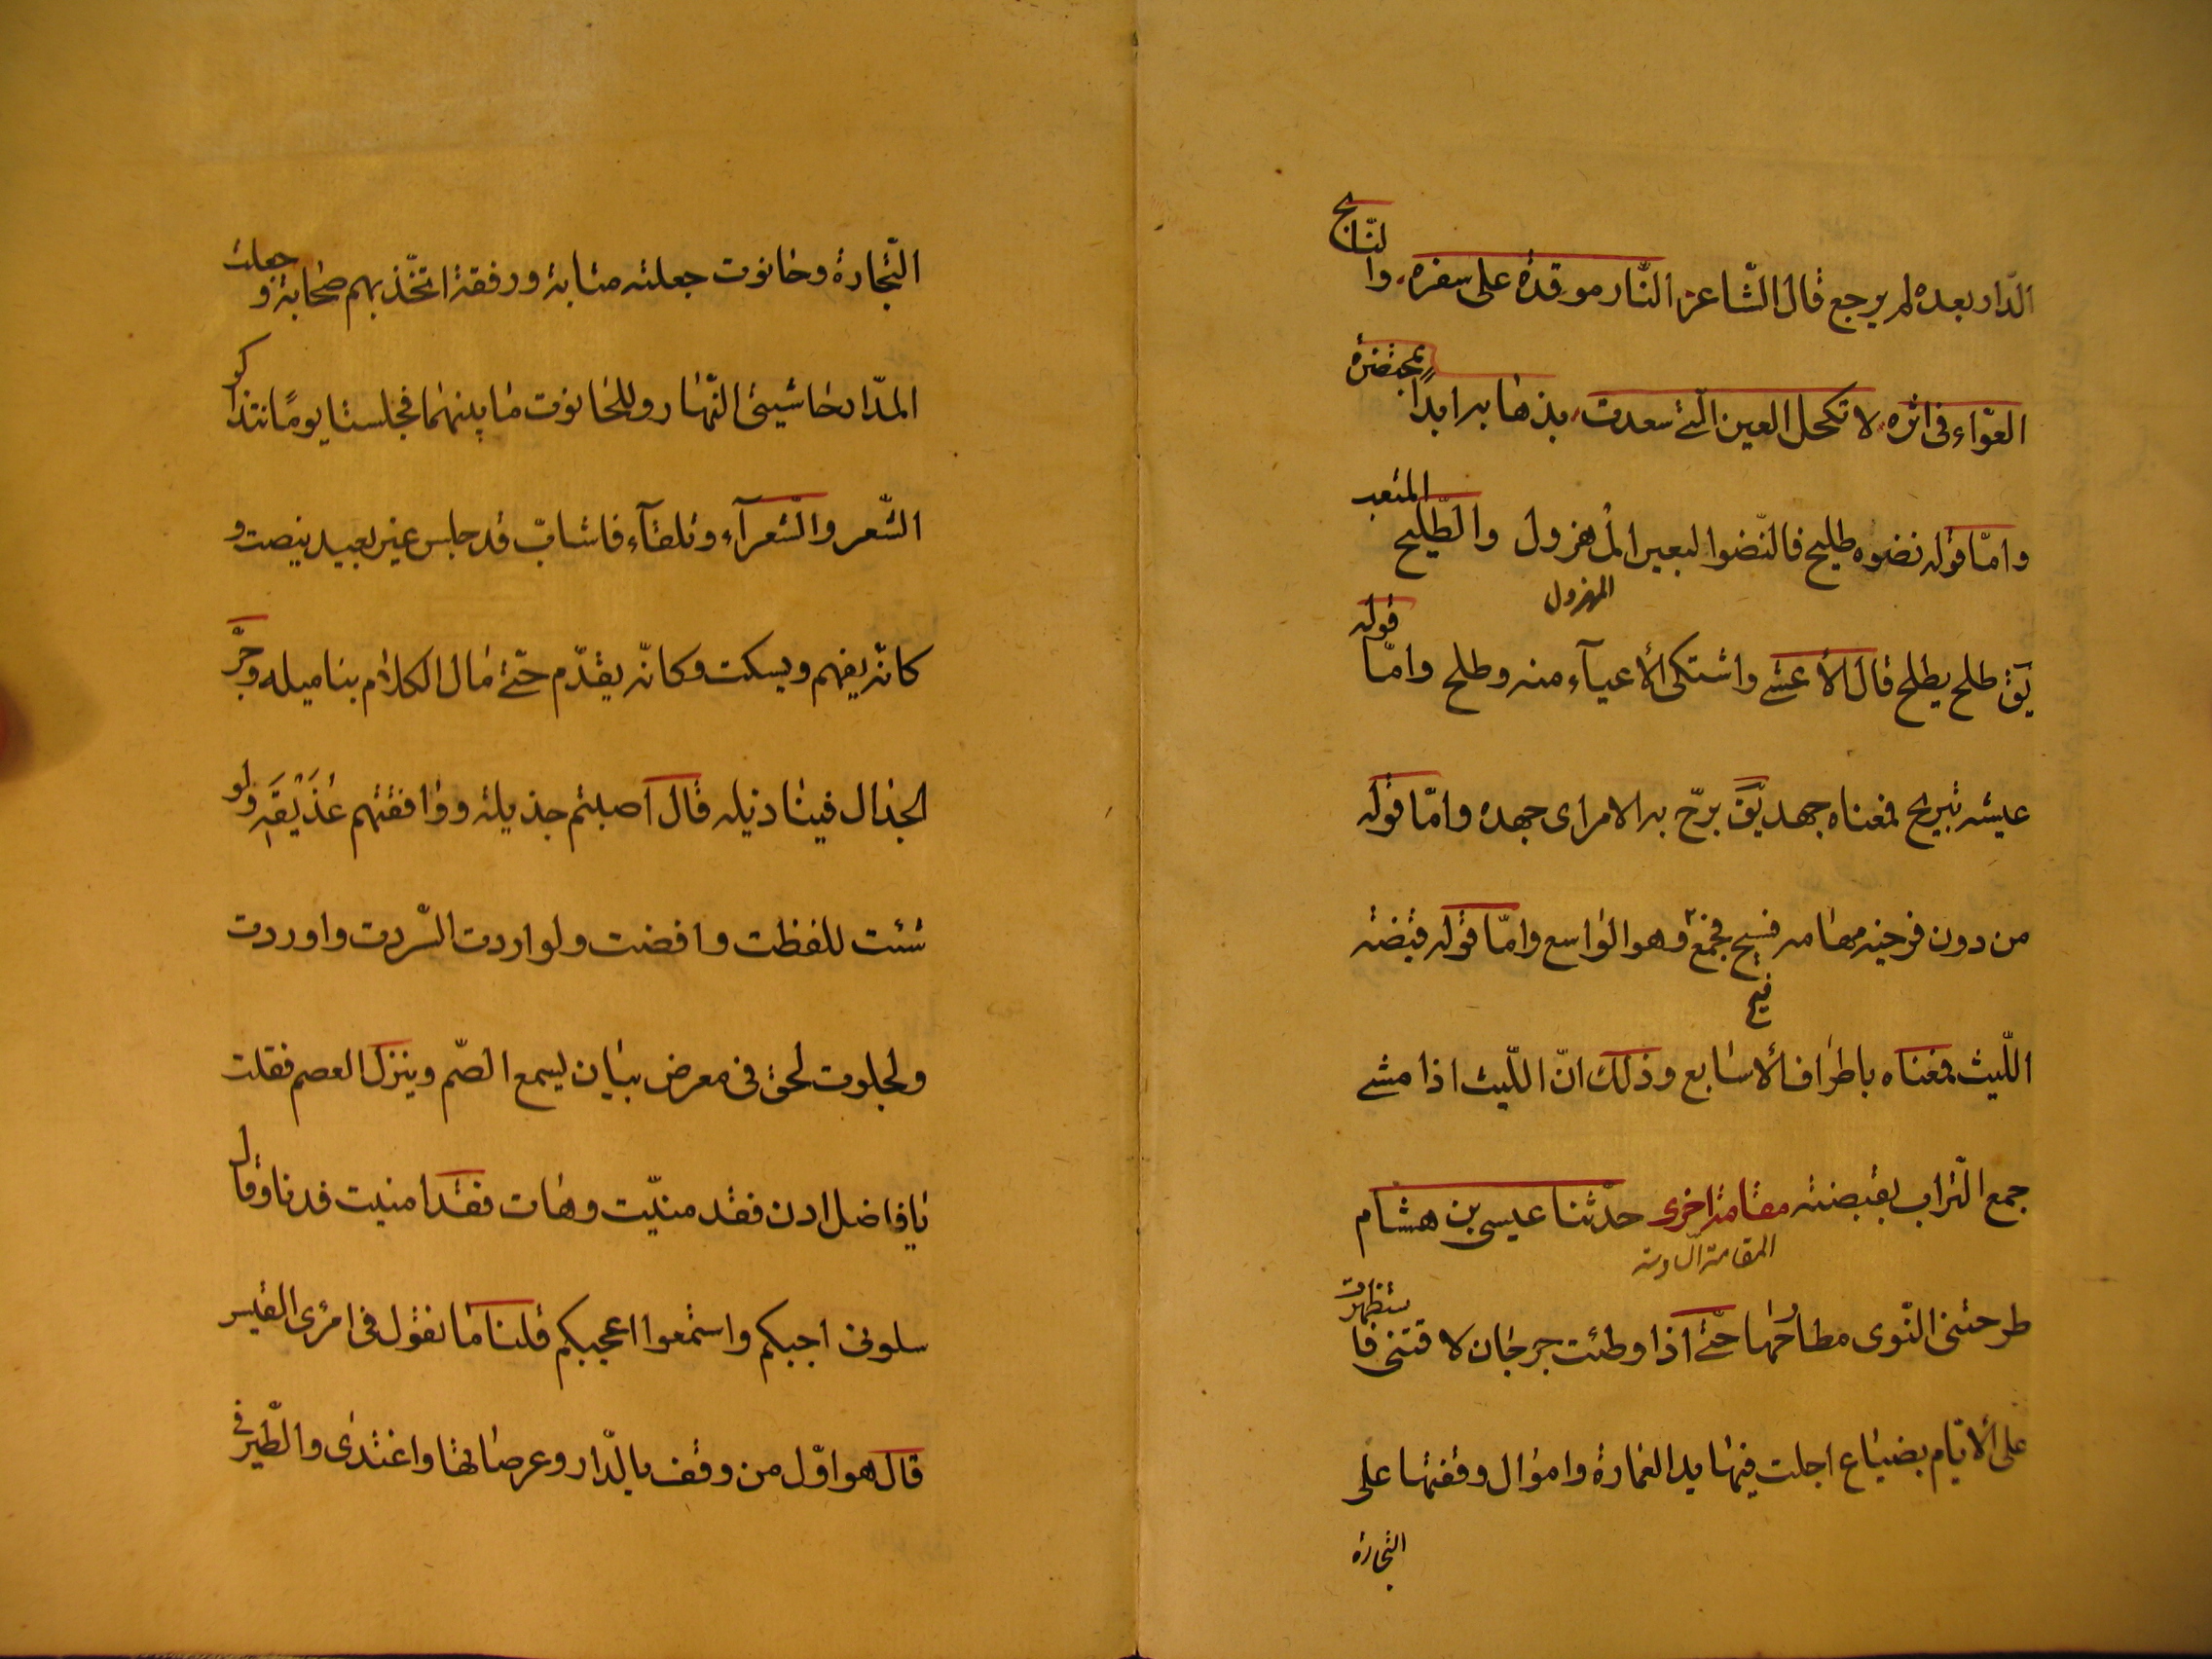 الدّار بعده لم يرجع قال الشّاعر النّار موقدة على سفره، والنّابح
العوّاء فى اثره، لا تكحل العين الّتى سعدت، بذهابه ابدا بمحتضره
وامّا قوله نضوه طليح فالنّضوا لبعير المهزول والطّليح المتعب
المهزول
يق طلح يطلح قال الأعشى واشتكى الأعيآء منه وطلح وامّا قوله
عيشه تبريح فمعناه جهد يقّ برّح به الامر اى جهده وامّا قوله
من دون فرحيه مهامه فسيح فجمع وهو الواسع وامّا قوله قبضه
فيح
اللّيث فمعناه باطراف الأسابع وذلك انّ اللّيث اذا مشى
جمع التّراب بقبضته مقامة اخرى حدّثنا عيسى بن هشام
المقامة
طرحتنى النّوى مطارحها حتّى اذا وطئت جرجان لاقتنى فاستظهرت
على الأيّام بضياع اجلت فيها يد العمارة واموال وقفتها على
التجارة
التّجارة وحانوت جعلته مثابة ورفقة اتخّذ بهم صحابة وجعلت
المدّار حاشيتى النّهار وللحانوت ما بينهما فجلسنا يومًا نتذاكر
الشّعر والشّعرآء وتلقآء فاشابّ قد جلس غير بعيد ينصت و
كانّه يفهم ويسكت وكانّه يقدّم حتّى مال الكلام بنا ميله وجرّ
الجدال فينا ذيله قال اصبتم جذيله ووافقتهم عُذَيْقَه ولو
شئت للفظت وافضت ولو اردت السّردت واوردت
ولجلوت لحق فى معرض بيان يسمع الصّم وينزل العصم فقلت
يا فاضل ادن فقد منيّت وهات فقد امنيت فدنا وقال
سلونى اجبكم واستمعوا اعجبكم قلنا ما تقول فى امرئ القيس
قال هو اوّل من وقف بالدّار وعرصاتها واغتدى والطّير فى